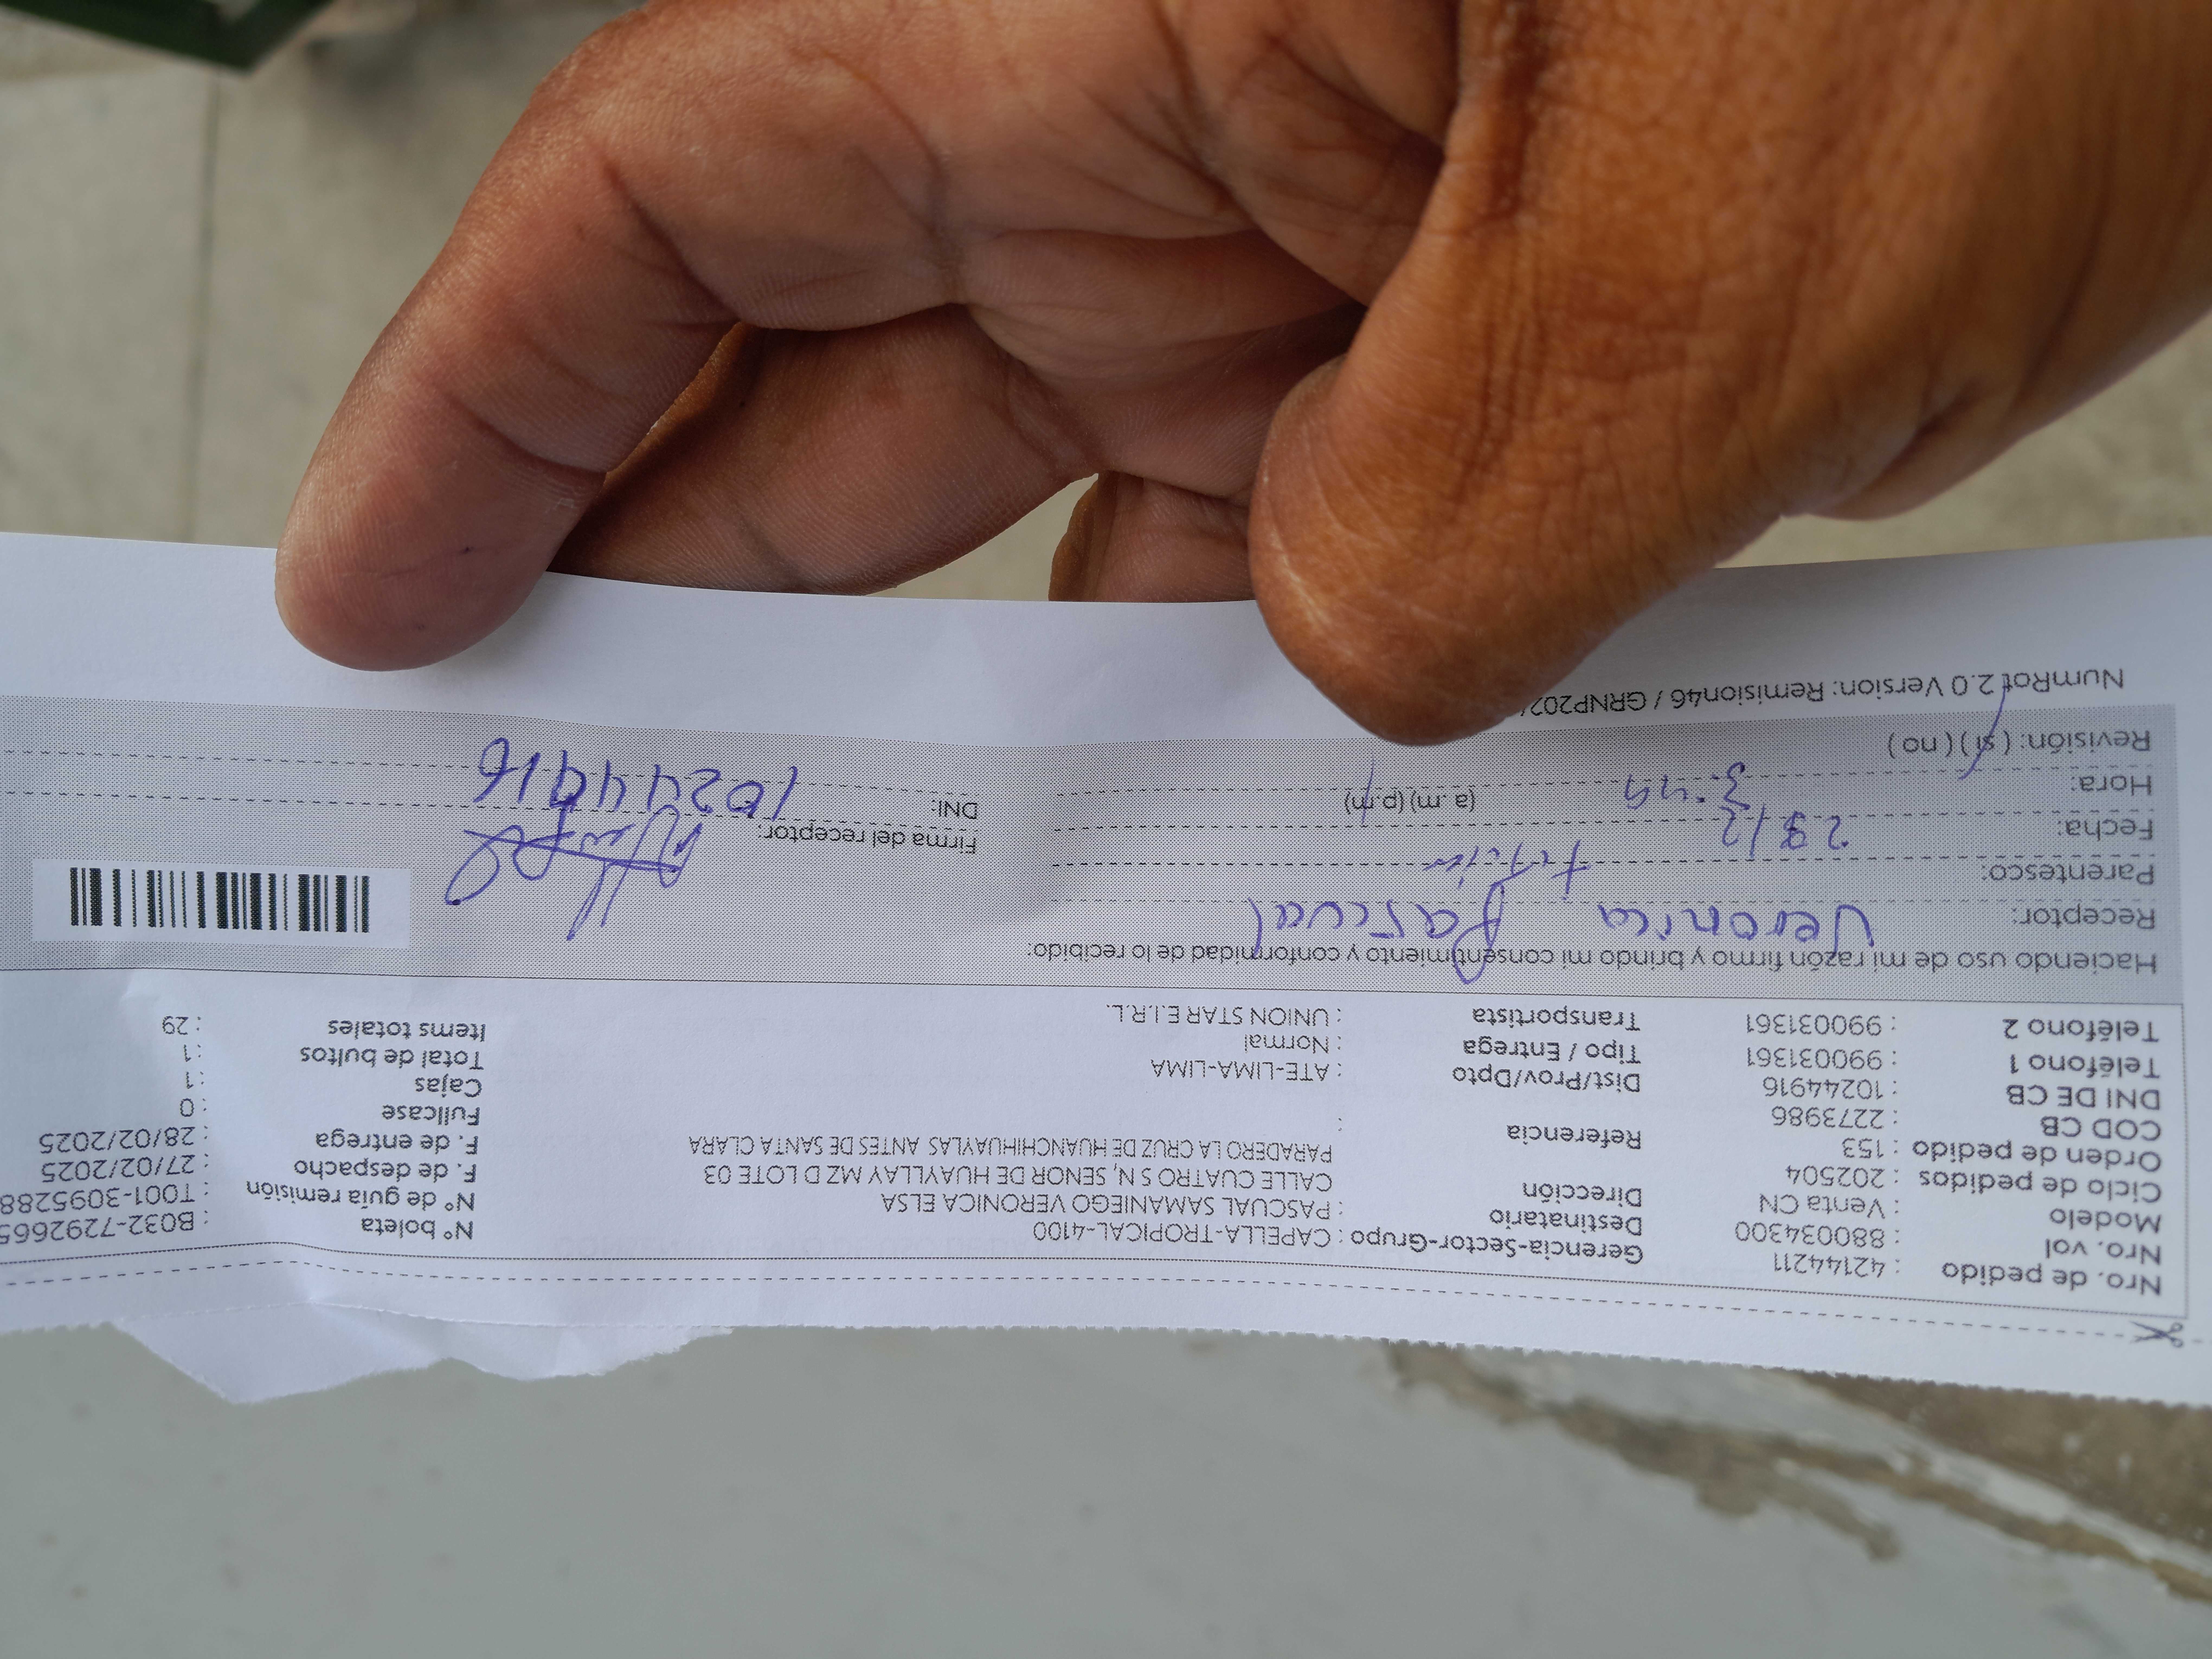 Nro. de pedido : 42144211
Nro. vol : 880034300
Modelo : Venta CN
Ciclo de pedidos : 202504
Orden de pedido : 153
COD CB : 2273986
DNI DE CB : 10244916
Teléfono 1 : 990031361
Teléfono 2 : 990031361
Gerencia-Sector-Grupo : CAPELLA-TROPICAL-4100
Destinatario : PASCUAL SAMANIEGO VERONICA ELSA
Dirección CALLE CUATRO S N, SENOR DE HUAYLLAY MZ D LOTE 03
PARADERO LA CRUZ DE HUANCHIHUAYLAS ANTES DE SANTA CLARA
Referencia :
Dist/Prov/Dpto : ATE-LIMA-LIMA
Tipo / Entrega : Normal
Transportista : UNION STAR E.I.R.L.
N° boleta : B032-7292665
N° de guía remisión : T001-3095288
F. de despacho : 27/02/2025
F. de entrega : 28/02/2025
Fullcase : 0
Cajas : 1
Total de bultos : 1
Items totales : 29
Haciendo uso de mi razón firmo y brindo mi consentimiento y conformidad de lo recibido:
Receptor: Veronica Pascual
Parentesco:
Fecha:
Hora: (a.m) (p.m)
Revisión: ( sí ) ( no )
Firma del receptor:
DNI: 10244916
NumRot 2.0 Version: Remision46 / GRNP202